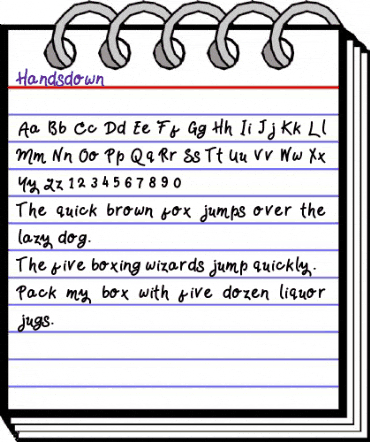 Handsdown
Aa Bb Cc Dd Ee Ff Gg Hh Ii Jj Kk Ll
Mm Nn Oo Pp Qq Rr Ss Tt Uu Vv Ww Xx
Yy Zz 1 2 3 4 5 6 7 8 9 0
The quick brown fox jumps over the
lazy dog.
The five boxing wizards jump quickly.
Pack my box with five dozen liquor
jugs.